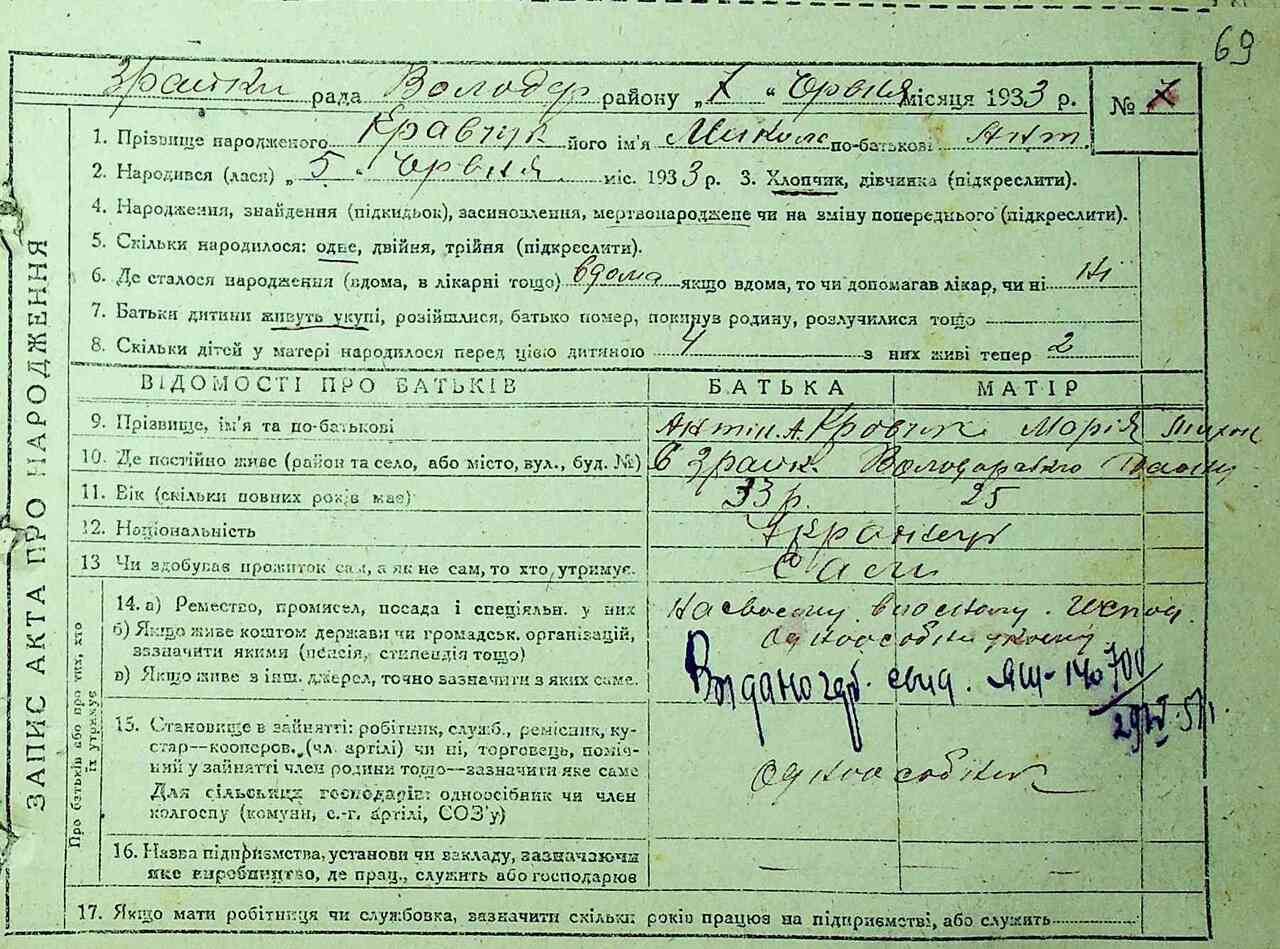 69
Зрайки рада Володар району „7" Червня місяця 1933 р. № 7
ЗАПИС АКТА ПРО НАРОДЖЕННЯ
1. Прізвище народженого Кравчук його ім'я Микола по-батькові Ант.
2. Народився (лася) „5" Червня міс. 1933 р. 3. Хлопчик, дівчинка (підкреслити).
4. Народження, знайдення (підкидьок), засиновлення, мертвонароджене чи на зміну попереднього (підкреслити).
5. Скільки народилося: одне, двійня, трійня (підкреслити).
6. Де сталося народження (вдома, в лікарні тощо) вдома якщо вдома, то чи допомагав лікар, чи ні Ні
7. Батьки дитини живуть укупі, розійшлися, батько помер, покинув родину, розлучилися тощо
8. Скільки дітей у матері народилося перед цією дитиною 4 з них живі тепер 2
ВІДОМОСТІ ПРО БАТЬКІВ БАТЬКА МАТІР
9. Прізвище, ім'я та по-батькові Антін. А. Кровчук Морія Тихон
10. Де постійно живе (район та село, або місто, вул., буд. №) в Зрайк. Володарського
11. Вік (скільки повних років має) 33 р. 25
12. Національність
13 Чи здобував прожиток сам, а як не сам, то хто утримує. Сами
Про батьків або про тих, хто їх утримує
14. а) Ремество, промисел, посада і спеціяльн. у них На своєму власному. Господ.
б) Якщо живе коштом держави чи громадськ. організацій,
зазначити якими (пенсія, стипендія тощо)
в) Якщо живе з інш. джерел, точно зазначити з яких саме.
Видано свид. ЯШ-140700
29 51 г.
15. Становище в зайнятті: робітник, служб., ремісник, ку-
стар—кооперов. (чл. артілі) чи ні, торговець, поміч-
ний у зайнятті член родини тощо—зазначити яке саме
Для сільських господарів: одноосібник чи член
колгоспу (комуни, с.-г. артілі, СОЗ'у)
Одноособник
16. Назва підприємства, установи чи закладу, зазначаючи
яке виробництво, де прац., служить або господарює — —
17. Якщо мати робітниця чи службовка, зазначити скільки років працює на підприємстві, або служить